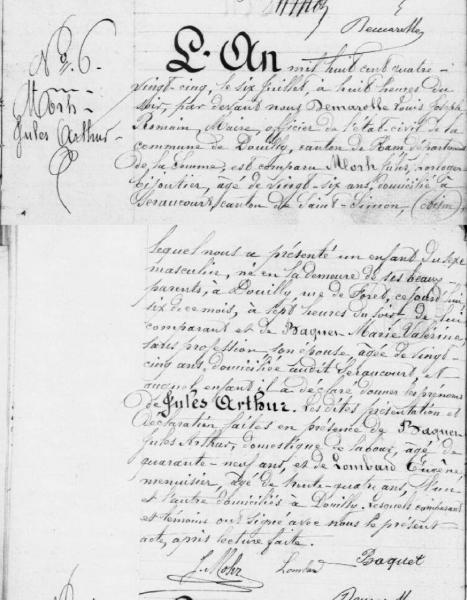 Demarolle
N° 6.
Morh
Jules Arthur
L'An mil huit cent quatre-
vingt-cinq, le six Juillet, à huit heures du
soir, par devant nous Demarolle Louis Joseph
Romain, Maire, officier de l'état-civil de la
commune de Douilly, canton de Ham, département
de la Somme, est comparu Morh Jules, horloger
bijoutier, âgé de vingt-six ans, domicilié à
Seraucourt, canton de Saint-Simon,
lequel nous a présenté un enfant du sexe
masculin, né en la demeure de ses beaux
parents, à Douilly, rue de Foret, ce jourd'hui
six de ce mois, à sept heures du soir, de lui
comparant et de Baquer Marie Valérine,
sans profession, son épouse, âgée de vingt-
cinq ans, domiciliée audit Seraucourt, et
auquel enfant il a déclaré donner les prénoms
de Jules Arthur. Lesdites présentation et
déclaration faites en présence de Baquer
Jules Arthur, domestique de labour, âgé de
quarante-neuf ans, et de Lombard Eugène,
menuisier, âgé de trente-quatre ans, l'un
et l'autre domiciliés à Douilly, lesquels comparant
et témoins ont signé avec nous le présent
acte, après lecture faite.
J. Mohr Lombard Baquet